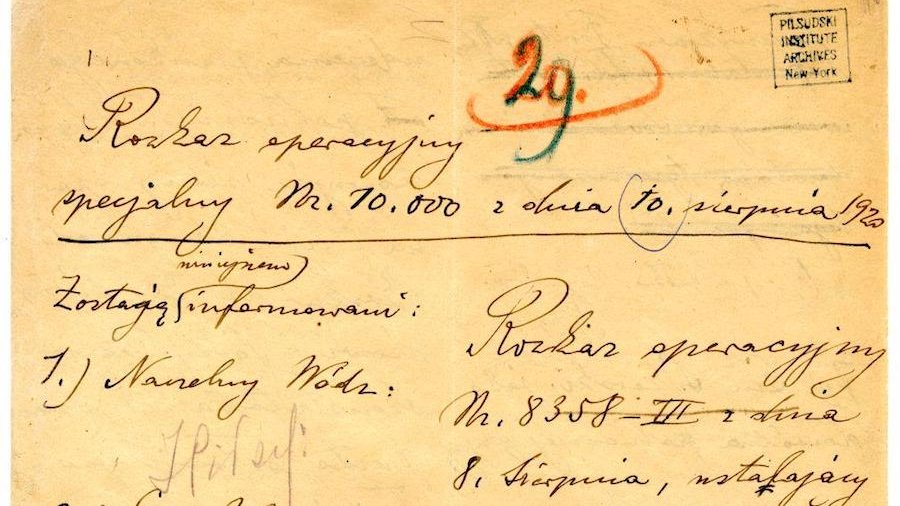 PILSUDSKI
INSTITUTE
ARCHIVES
New-York
29.
Rozkaz operacyjny
specjalny Nr. 10.000 z dnia 10. sierpnia 1920
niniejszem
Zostają informowani:
1.) Naczelny Wódz:
Rozkaz operacyjny
Nr. 8358-III z dnia
8. Sierpnia, ustalający